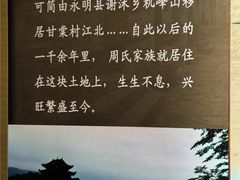 可简由永明县谢沐乡杌峰山移
居甘棠村江北……自此以后的
一千余年里，周氏家族就居住
在这块土地上，生生不息，兴
旺繁盛至今。